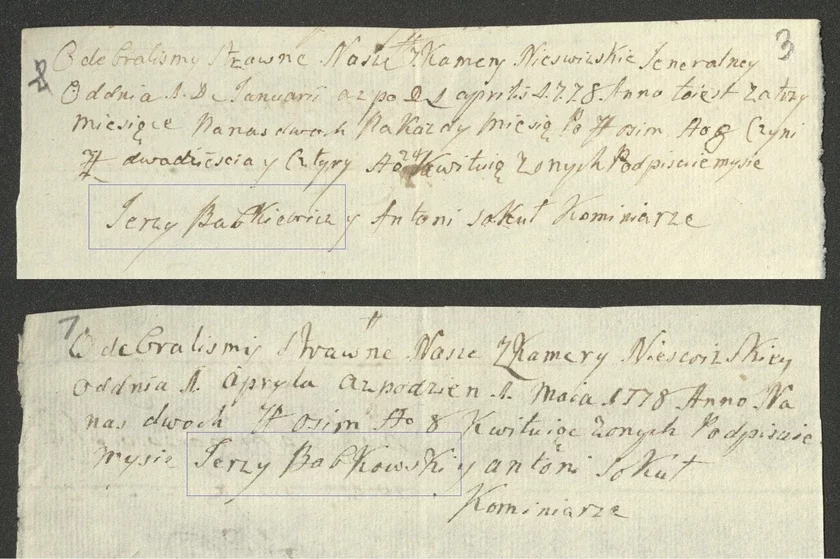 3
Odebralismy Strawne Nasze z Kamery Nieswizskie Jeneralney
Oddnia 1. D. Januarii azpo 1 aprilis 1778 Anno toiest zatrzy
miesięce Nanasdwoch Nakażdy miesią Po # osim No 8 Czyni
# dwadzieścia y Cztyry No 24 Kwituią zonych Podpisuiemysie
Jerzy Babkiewicz y Antoni Sokuł Kominiarze
7
Odebralismy Strawne Nasze z Kamery Nieswizskiey
Oddnia 1. Apryla azpodzien 1. Maia 1778 Anno Na
nas dwoch # osim No 8 Kwituiąc zonych Podpisuie
mysie Jerzy Babkowski y antoni Sokuł
Kominiarze